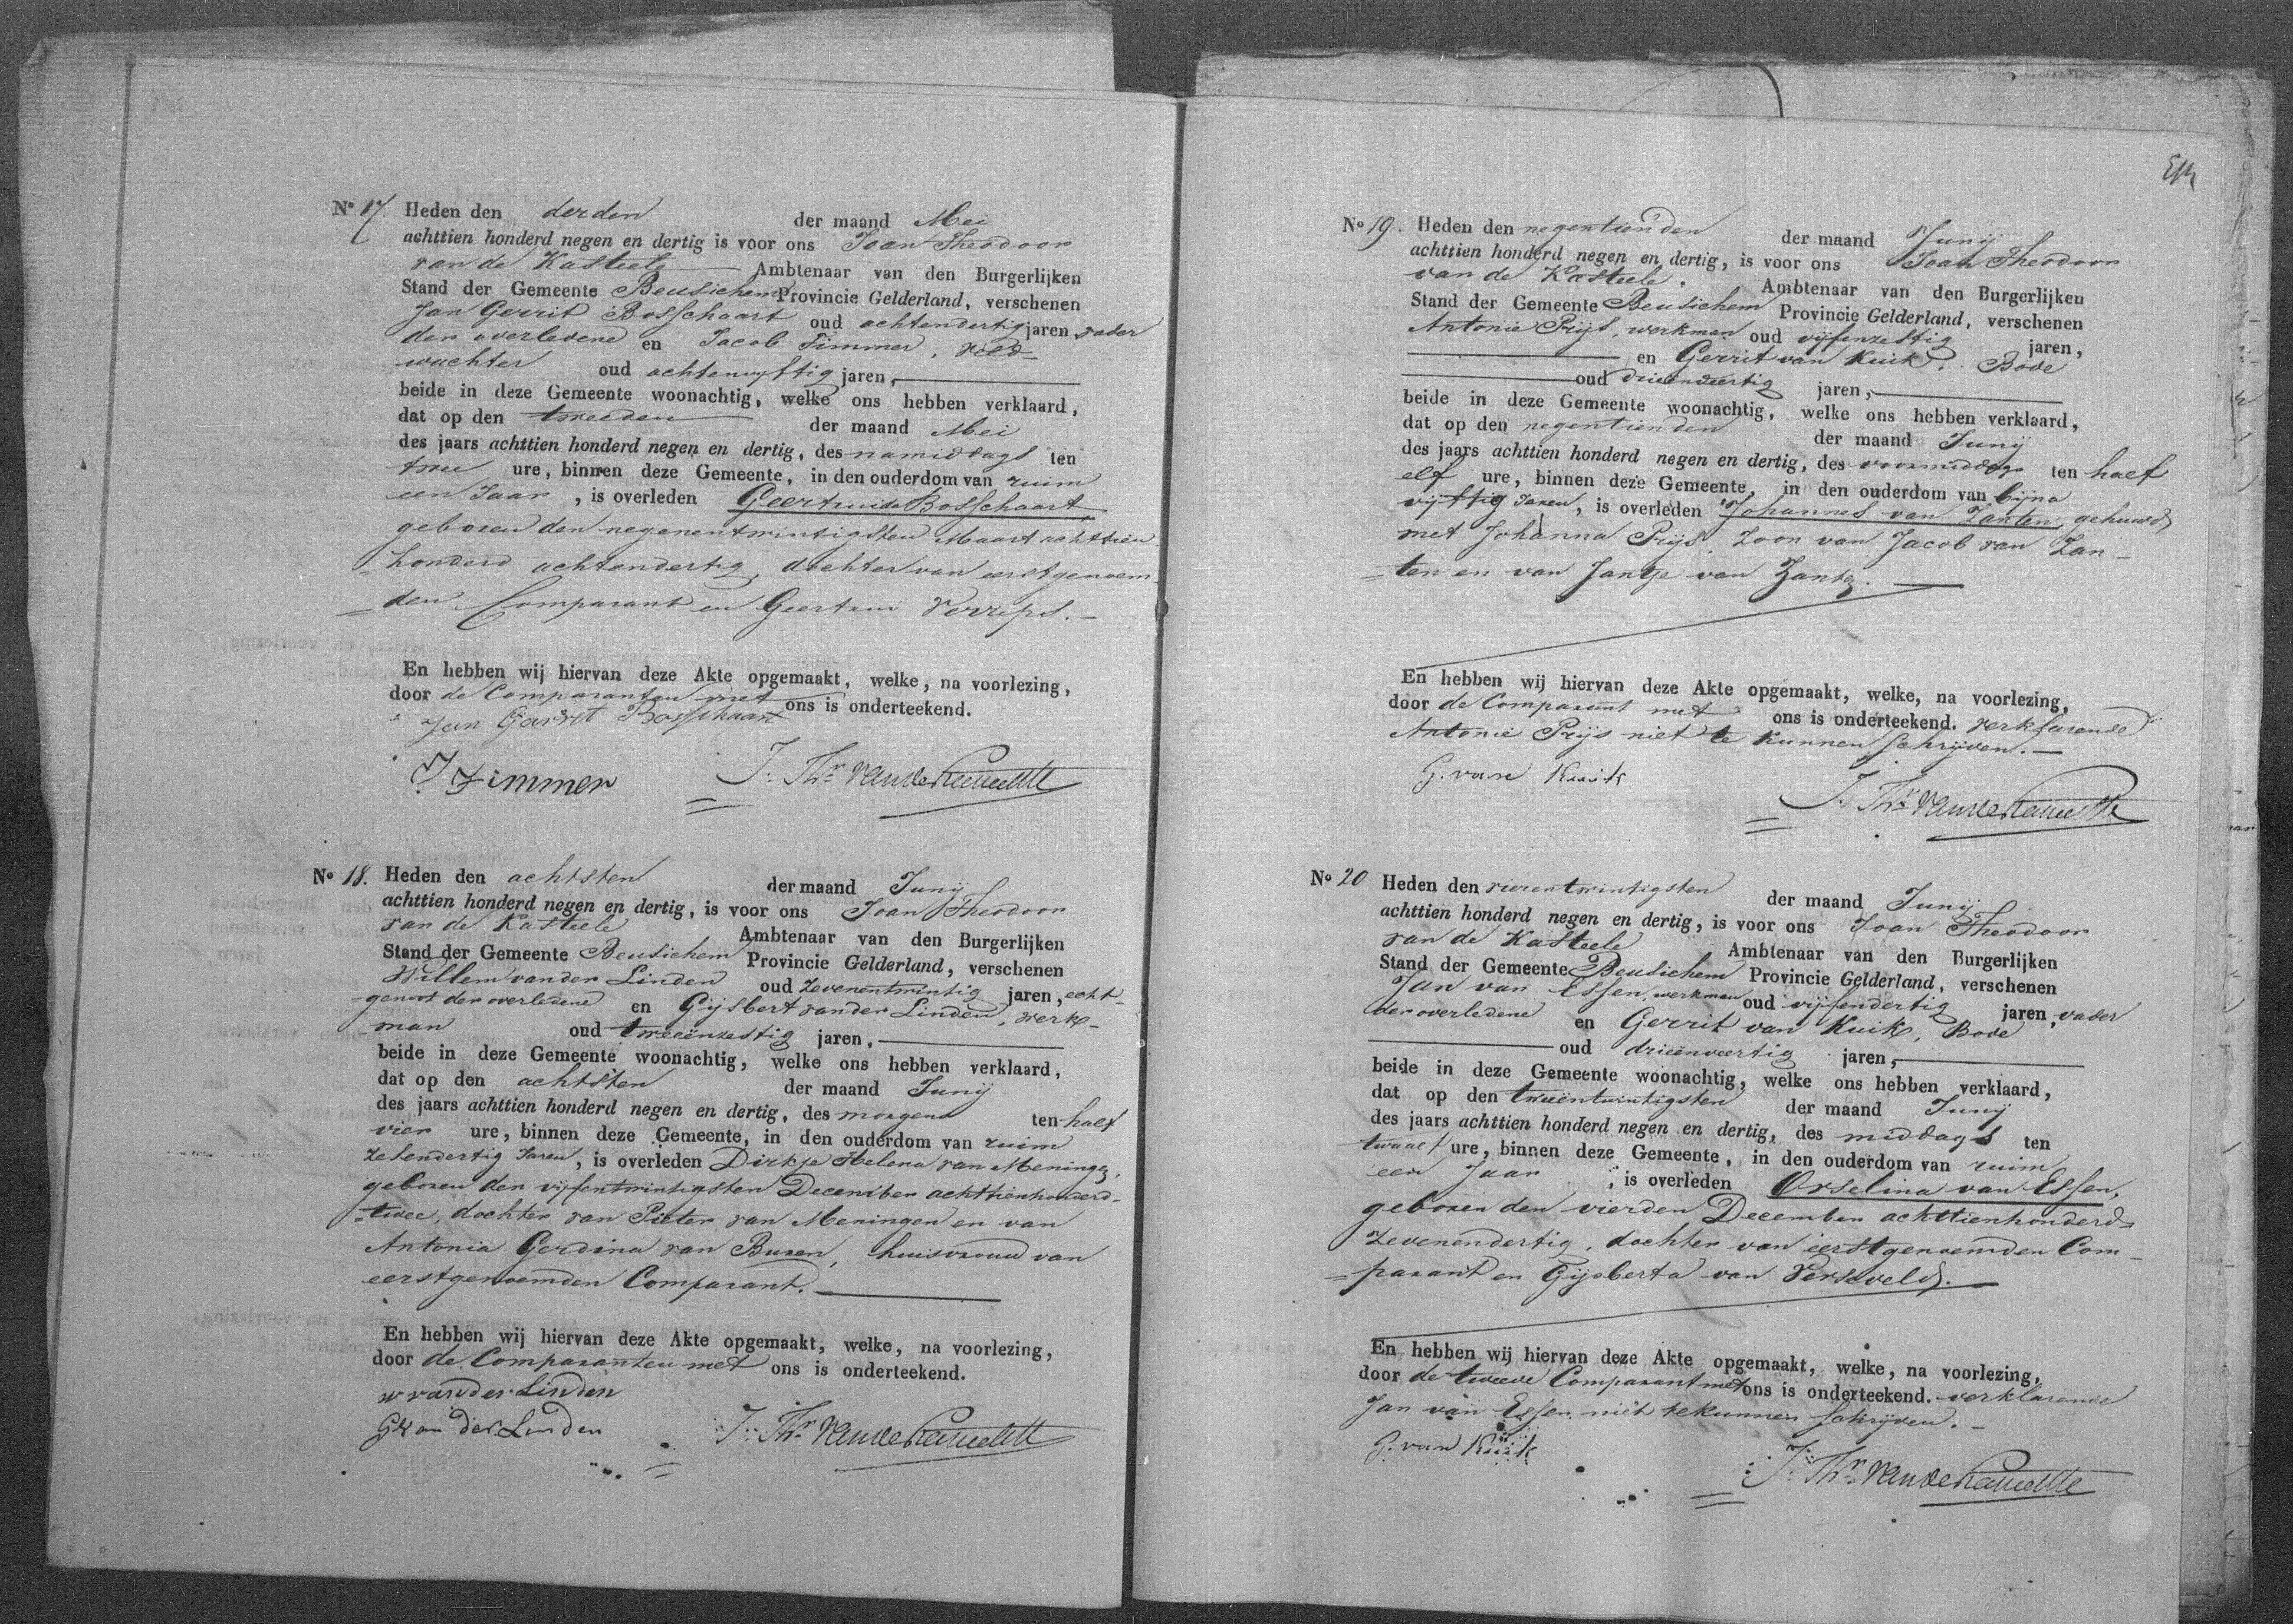 No 17. Heden den derden der maand Mei
achttien honderd negen en dertig is voor ons Joan Theodoor
van de Kasteele Ambtenaar van den Burgerlijken
Stand der Gemeente Beusichem Provincie Gelderland, verschenen
Jan Gerrit Bosschaart oud achtendertig jaren, vader
der overledene en Jacob Timmer, veld-
wachter oud achtenvyftig jaren,
beide in deze Gemeente woonachtig, welke ons hebben verklaard,
dat op den tweeden der maand Mei
des jaars achttien honderd negen en dertig, des namiddags ten
twee ure, binnen deze Gemeente, in den ouderdom van ruim
een Jaar, is overleden Geertruida Bosschaart,
geboren den negenentwintigsten Maart achttien
honderd achtendertig, dochter van eerstgenoem-
den Comparant en Geertrui Verrips.
En hebben wij hiervan deze Akte opgemaakt, welke, na voorlezing,
door de Comparanten met ons is onderteekend.
Jan Garrit Bosschaart
J. Timmer J. Thr. van de Kasteele
No 18. Heden den achtsten der maand Junij
achttien honderd negen en dertig, is voor ons Joan Theodoor
van de Kasteele Ambtenaar van den Burgerlijken
Stand der Gemeente Beusichem Provincie Gelderland, verschenen
Willem van der Linden oud zevenentwintig jaren, echt-
genoot der overledene en Gijsbert van der Linden, werk-
man oud tweeënzestig jaren,
beide in deze Gemeente woonachtig, welke ons hebben verklaard,
dat op den achtsten der maand Junij
des jaars achttien honderd negen en dertig, des morgens ten half
vier ure, binnen deze Gemeente, in den ouderdom van ruim
zesendertig Jaren, is overleden Dirkje Helena van Meningen,
geboren den vijfentwintigsten December achttienhonderd-
twee, dochter van Pieter van Meningen en van
Antonia Gerdina van Buren, huisvrouw van
eerstgenoemden Comparant.
En hebben wij hiervan deze Akte opgemaakt, welke, na voorlezing,
door de Comparanten met ons is onderteekend.
w van der Linden
G van der Linden J. Thr. van de Kasteele
No 19. Heden den negentienden der maand Junij
achttien honderd negen en dertig, is voor ons Joan Theodoor
van de Kasteele, Ambtenaar van den Burgerlijken
Stand der Gemeente Beusichem Provincie Gelderland, verschenen
Antonie Prijs, werkman oud vijfenzestig jaren,
en Gerrit van Kuik, Bode
oud drieenveertig jaren,
beide in deze Gemeente woonachtig, welke ons hebben verklaard,
dat op den negentienden der maand Junij
des jaars achttien honderd negen en dertig, des voormiddags ten half
elf ure, binnen deze Gemeente, in den ouderdom van bijna
vijftig Jaren, is overleden Johannes van Zanten, gehuwd
met Johanna Prijs, Zoon van Jacob van Zan-
ten en van Jantje van Zante.
En hebben wij hiervan deze Akte opgemaakt, welke, na voorlezing,
door de Comparant met ons is onderteekend. verklarende
Antonie Prijs niet te kunnen schrijven.
G. van Kuik
J. Thr. van de Kasteele
No 20 Heden den vierentwintigsten der maand Junij
achttien honderd negen en dertig, is voor ons Joan Theodoor
van de Kasteele Ambtenaar van den Burgerlijken
Stand der Gemeente Beusichem Provincie Gelderland, verschenen
Jan van Essen, werkman oud vijfendertig jaren, vader
der overledene en Gerrit van Kuik, Bode
oud drieënveertig jaren,
beide in deze Gemeente woonachtig, welke ons hebben verklaard,
dat op den tweëntwintigsten der maand Junij
des jaars achttien honderd negen en dertig, des middags ten
twaalf ure, binnen deze Gemeente, in den ouderdom van ruim
een Jaar, is overleden Orselina van Essen,
geboren den vierden December achttienhonderd-
zevenendertig, dochter van eerstgenoemden Com-
parant en Gijsberta van Verseveld.
En hebben wij hiervan deze Akte opgemaakt, welke, na voorlezing,
door de tweede Comparant met ons is onderteekend. verklarende
Jan van Essen niet te kunnen schrijven.
G. van Kuik
J. Thr. van de Kasteele